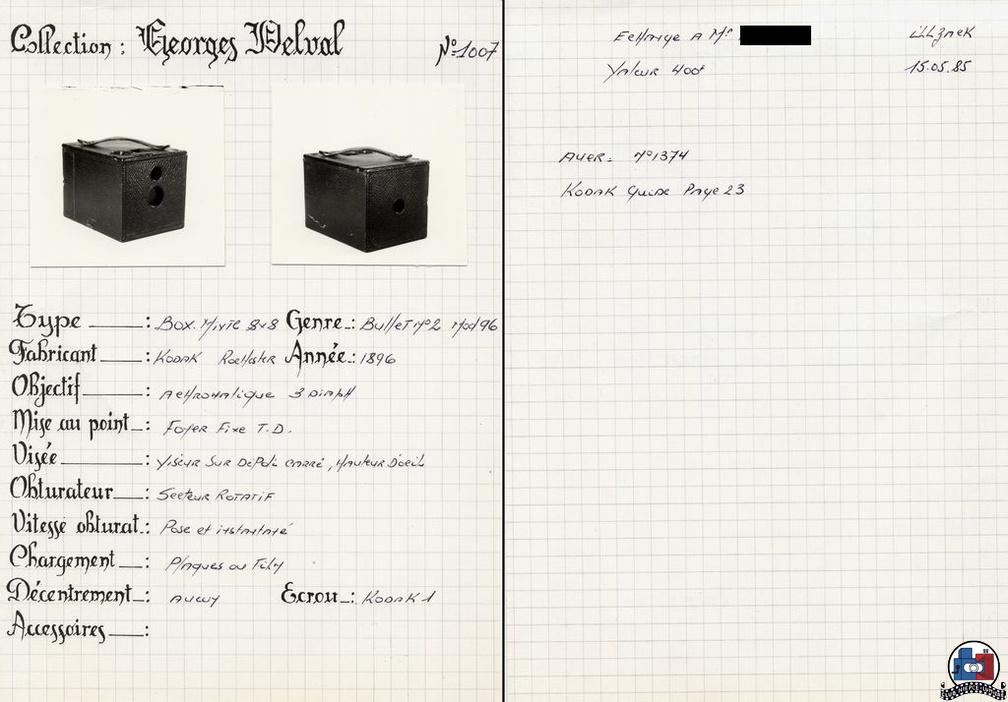 Collection : Georges Delval N° 1007
Type : Box. Mixte 8x8 Genre : Bullet N°2 Mod 96
Fabricant : Kodak Rochester Année : 1896
Objectif : Achromatique 3 Diaph
Mise au point : Foyer Fixe T.D.
Visée : Viseur Sur Depoli carré, Hauteur D'oeil
Obturateur : Secteur Rotatif
Vitesse obturat. : Pose et instantané
Chargement : Plaques ou Film
Décentrement : Aucun Ecrou : Kodak 1
Accessoires :
Echange A Mr
Valeur 400f 15.05.85
Auer. N°1374
Kodak Guide Page 23